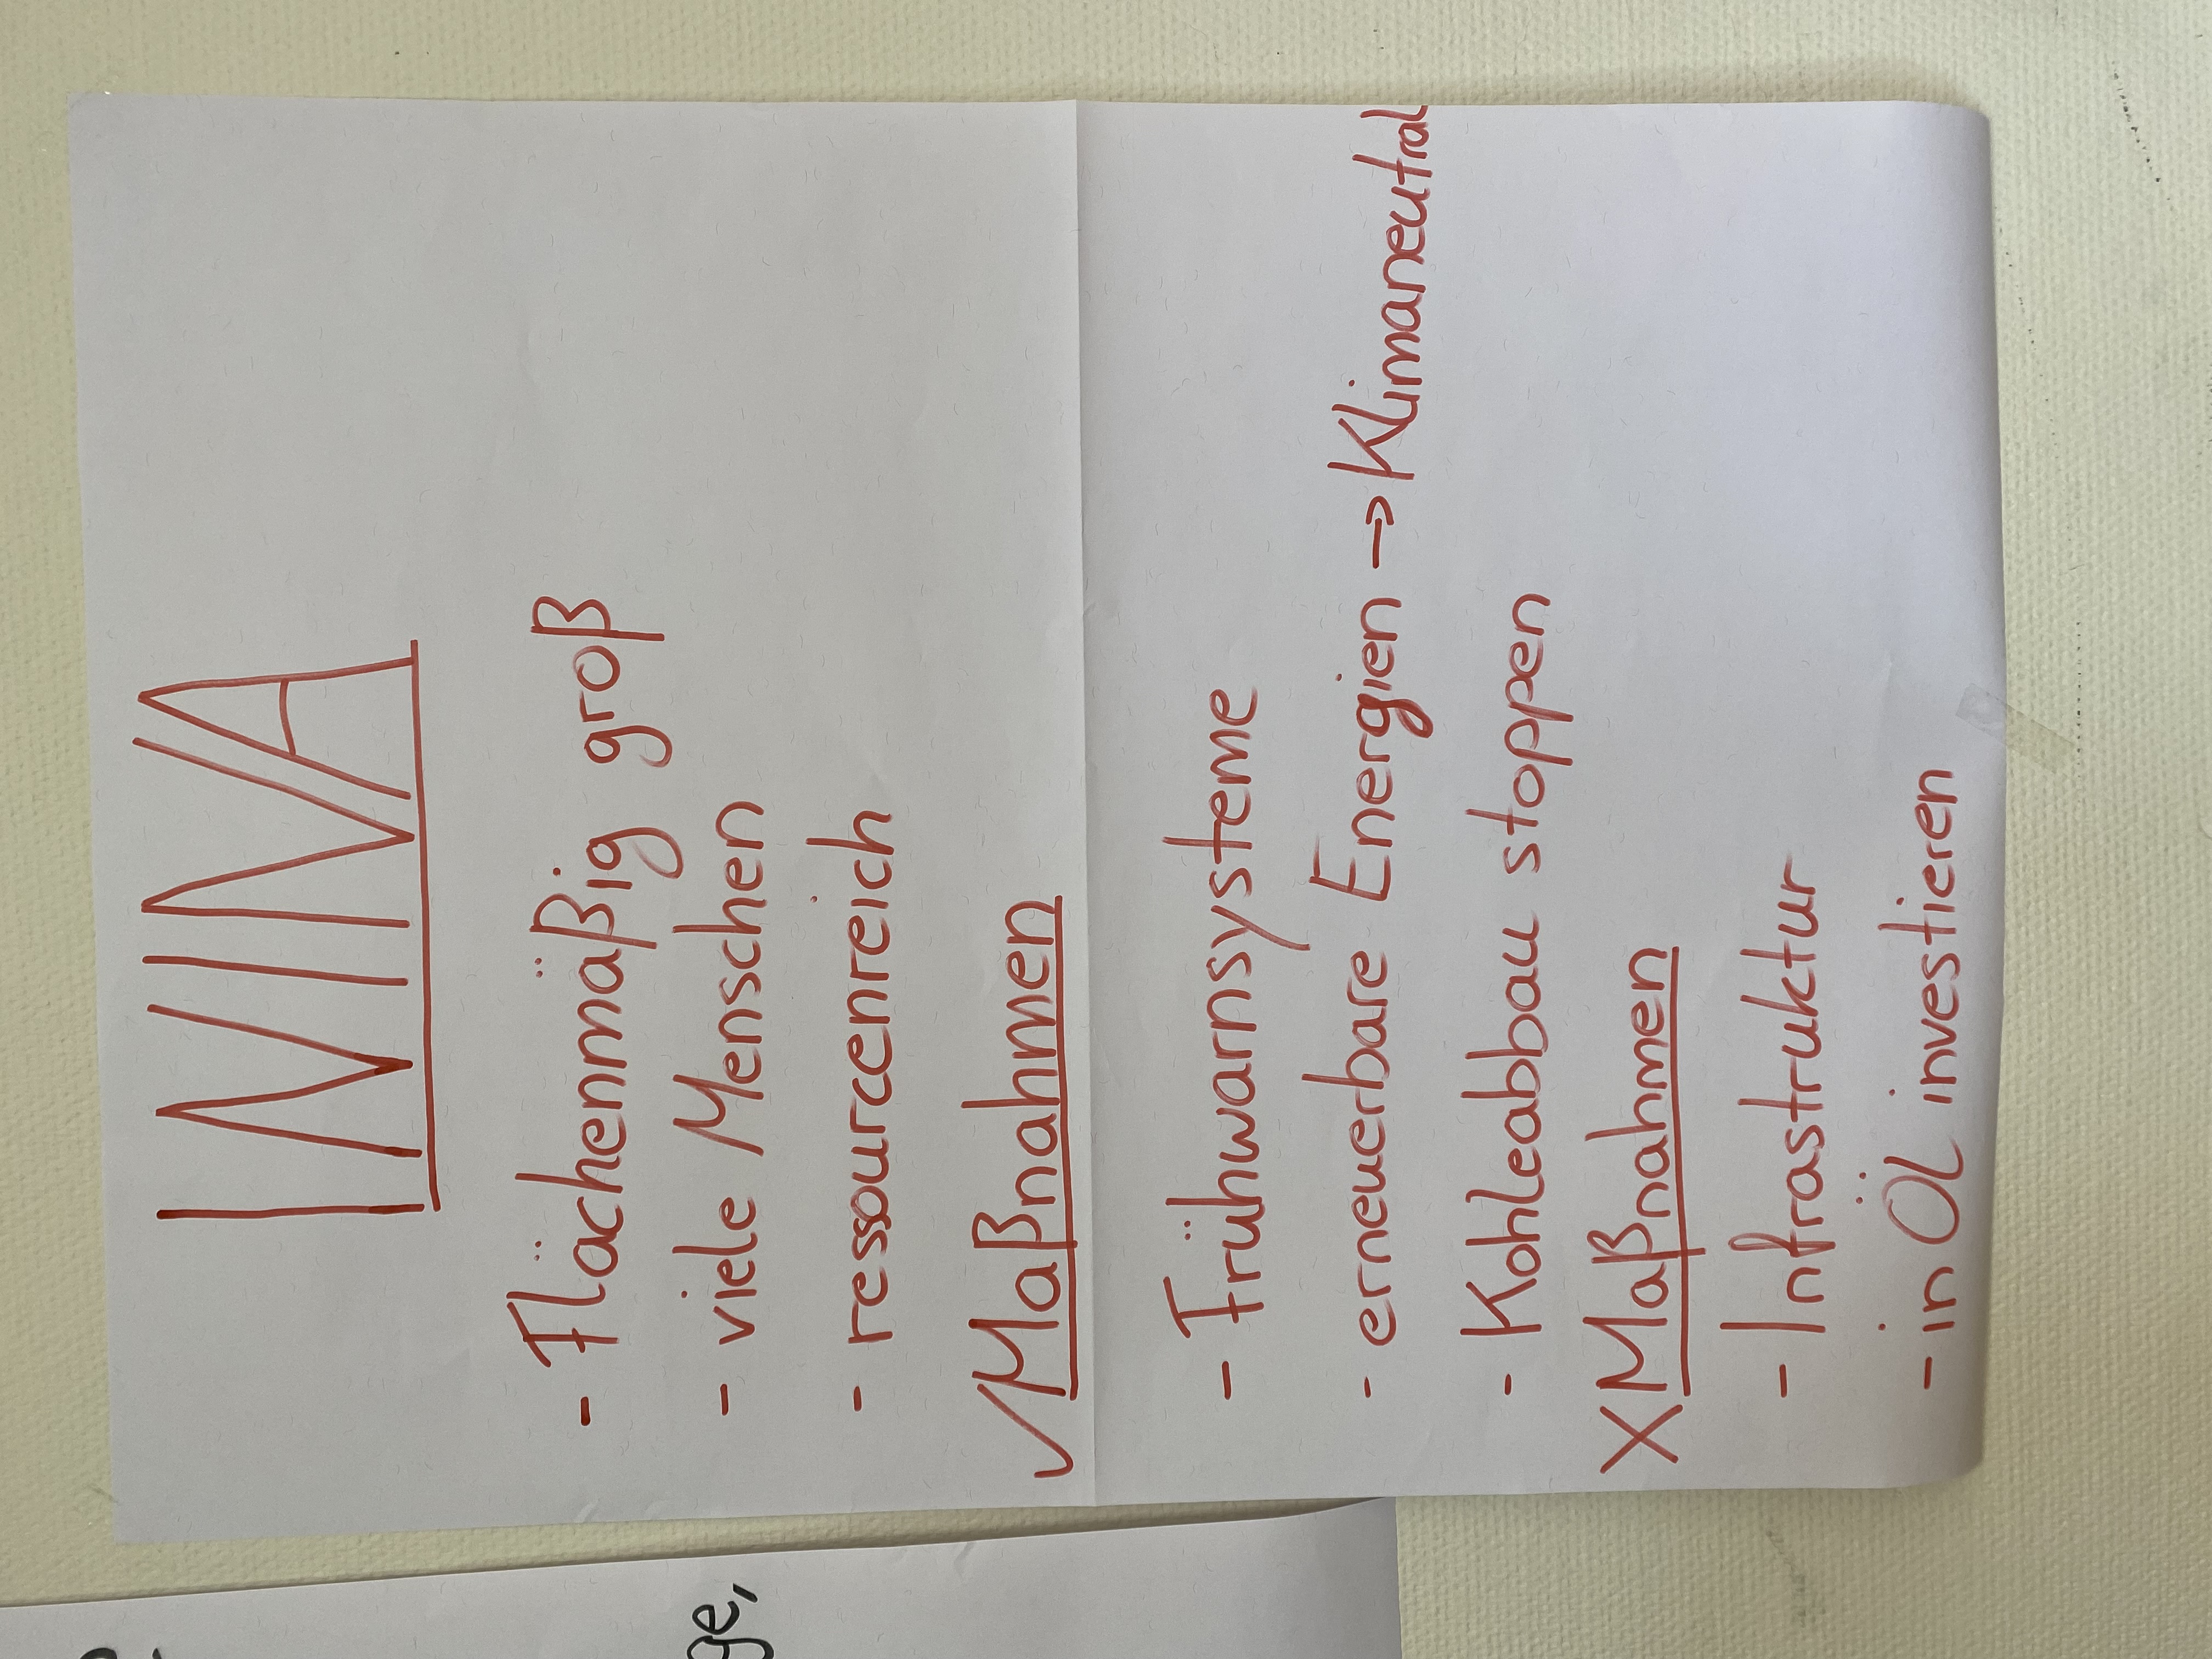 ININA
- Flächenmäßig groß
- viele Menschen
- ressourcenreich
✓ Maßnahmen
- Frühwarnsysteme
- erneuerbare Energien → Klimaneutral
- Kohleabbau stoppen
X Maßnahmen
- Infrastruktur
- in Öl investieren
ge,